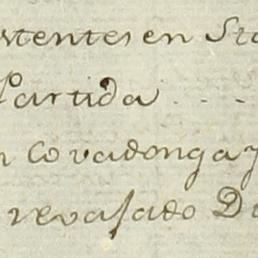 istentes en Sta
Partida . . .
n Covadonga y
revasado D